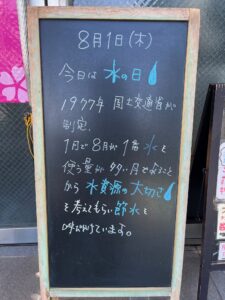 8月1日(木)
今日は水の日
1977年 国土交通省が
制定。
1月で8月が1番水を
使う量が多い月であること
から水資源の大切さ
を考えてもらい節水を
呼びかけています。